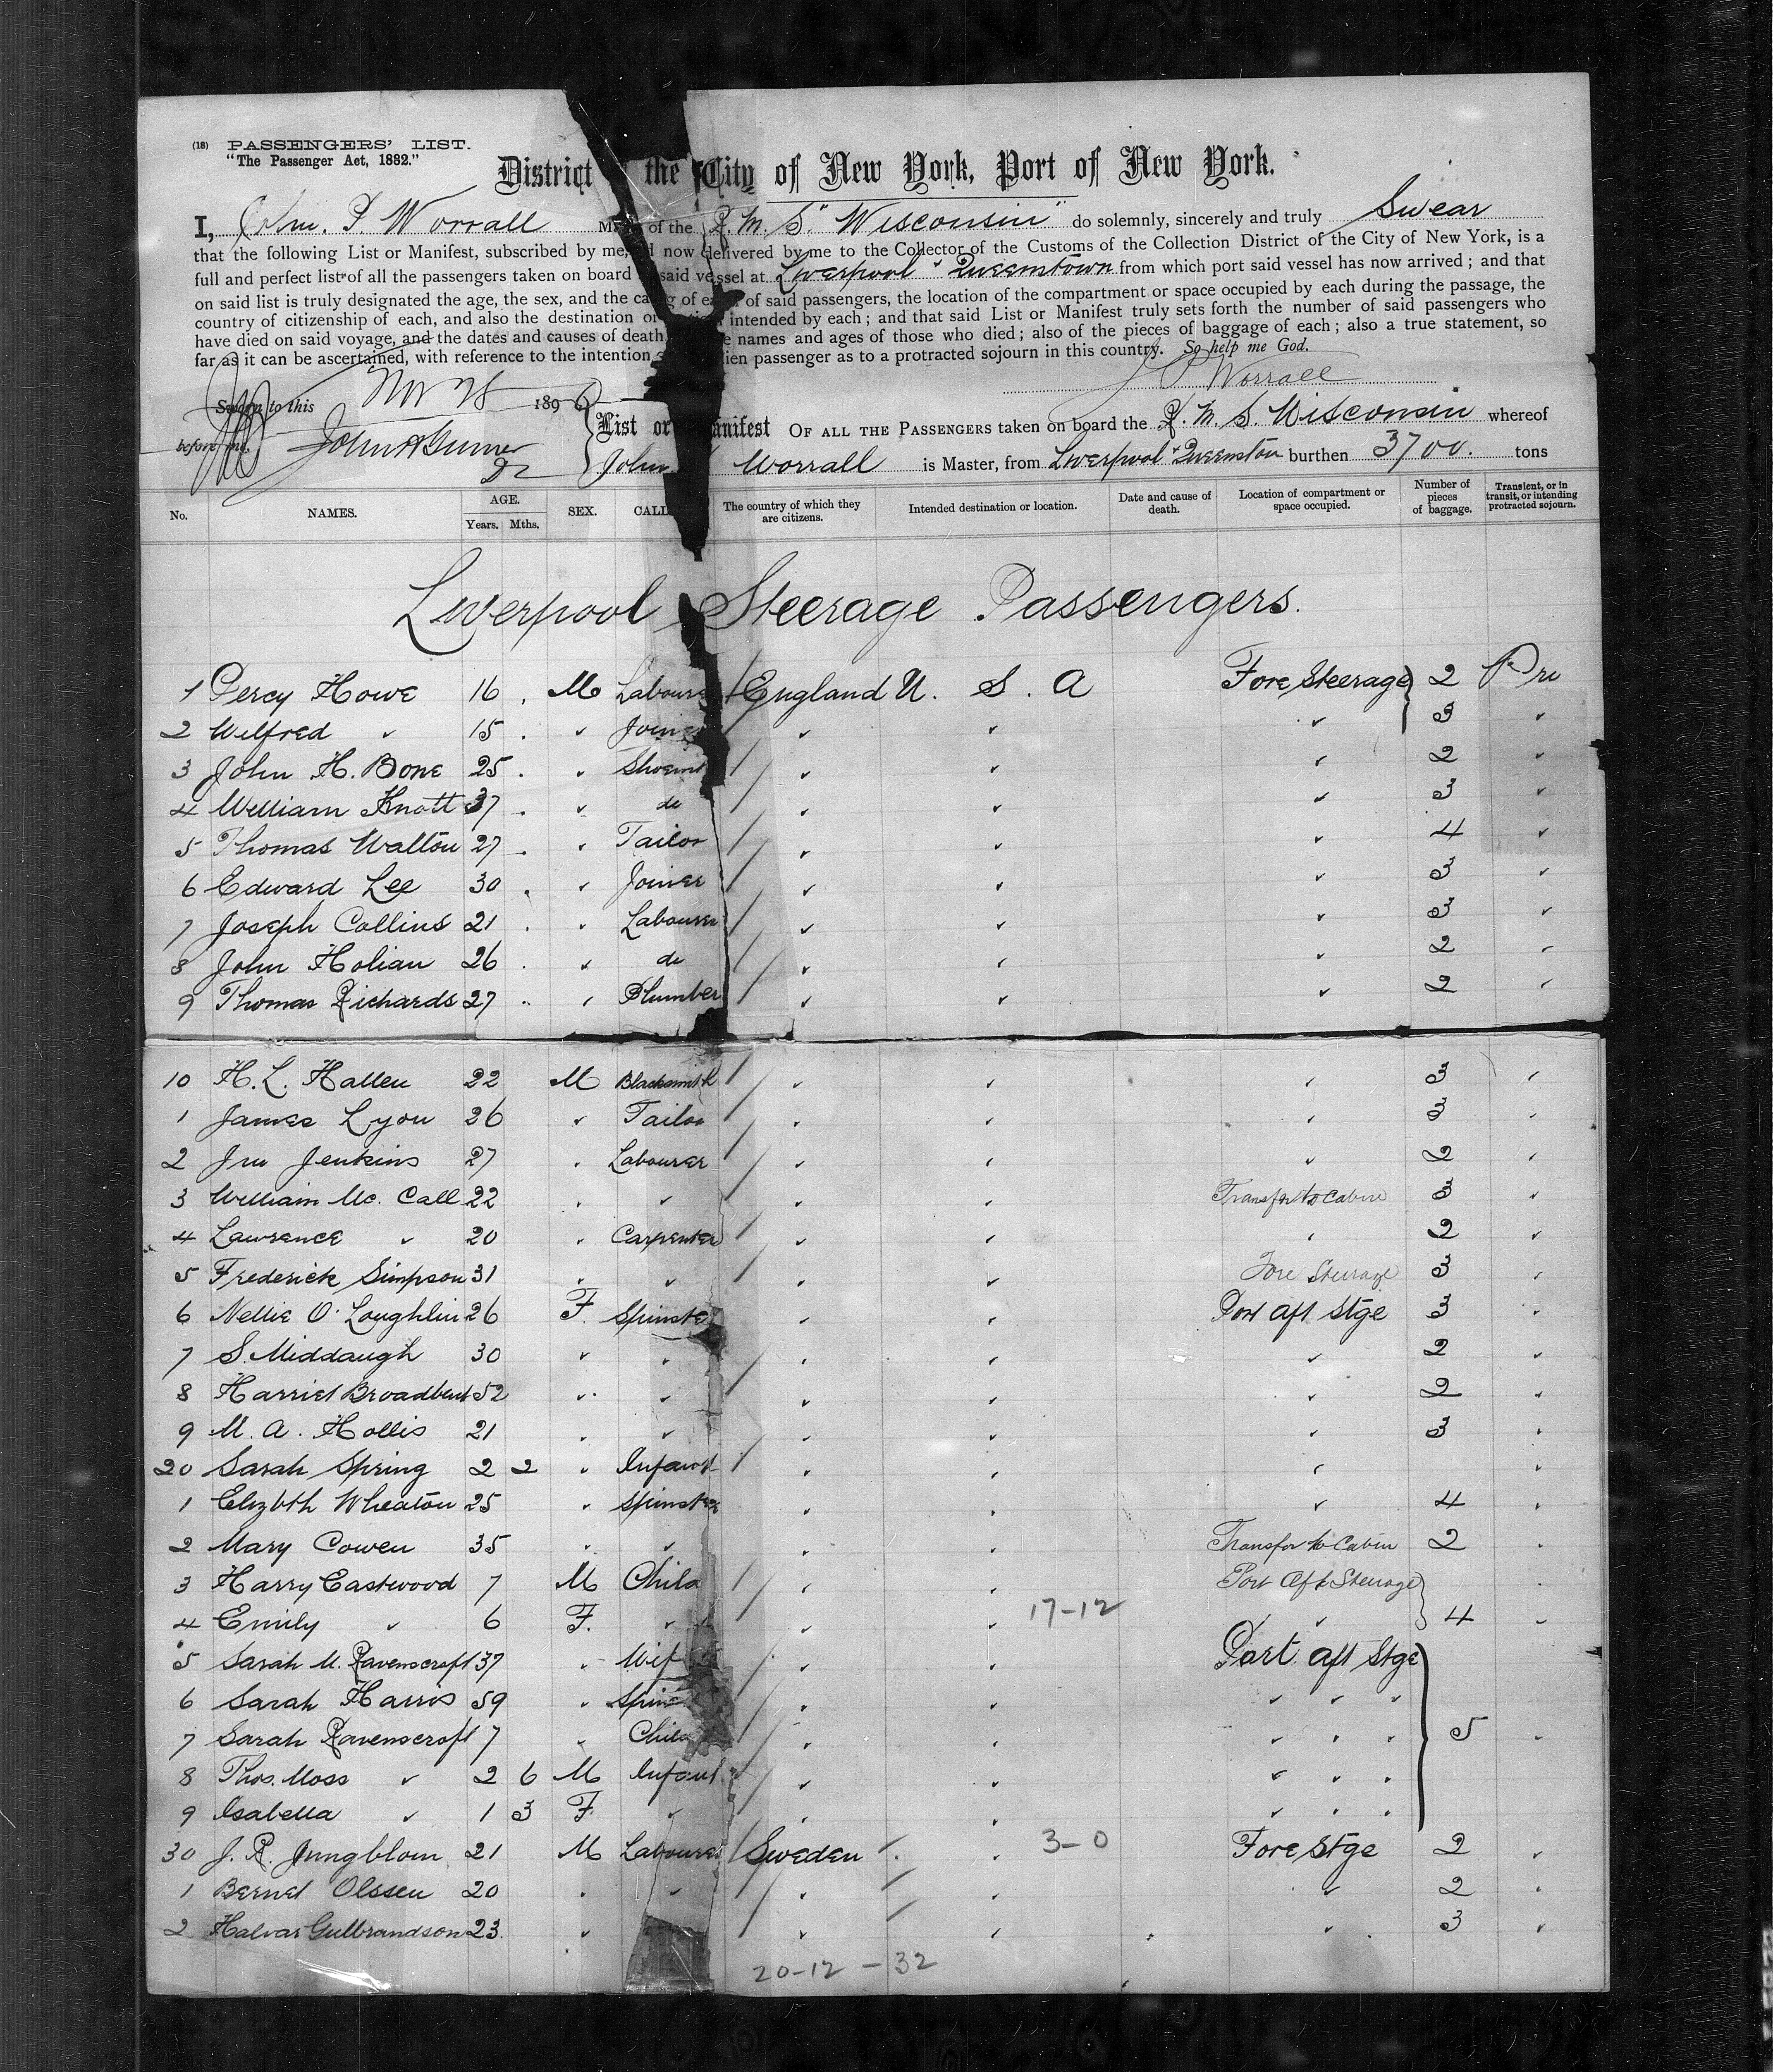 (18) PASSENGERS' LIST.
"The Passenger Act, 1882."
District the City of New York, Port of New York.
I, John. P Worrall of the R. M. S "Wisconsin" do solemnly, sincerely and truly Swear
that the following List or Manifest, subscribed by me, now delivered by me to the Collector of the Customs of the Collection District of the City of New York, is a
full and perfect list of all the passengers taken on board said vessel at Liverpool " Queenstown from which port said vessel has now arrived; and that
on said list is truly designated the age, the sex, and the of of said passengers, the location of the compartment or space occupied by each during the passage, the
country of citizenship of each, and also the destination or intended by each; and that said List or Manifest truly sets forth the number of said passengers who
have died on said voyage, and the dates and causes of death, names and ages of those who died; also of the pieces of baggage of each; also a true statement, so
far as it can be ascertained, with reference to the intention passenger as to a protracted sojourn in this country. So help me God.
J P Worrall
Sworn to this Nov 28 189
before me,
List or Manifest OF ALL THE PASSENGERS taken on board the R. M. S. Wisconsin whereof
John Worrall is Master, from Liverpool " Queenston burthen 3700. tons
No. NAMES. AGE. Years. Mths. SEX. CALL The country of which they are citizens. Intended destination or location. Date and cause of death. Location of compartment or space occupied. Number of pieces of baggage. Transient, or in transit, or intending protracted sojourn.
Liverpool Steerage Passengers.
1 Percy Howe 16 . M Labourer England U. S. A Fore Steerage 2
2 Wilfred " 15 . " Joiner " " " 3 "
3 John H. Bone 25 . " " " " 2 "
4 William Knott 37 . " do " " " 3 "
5 Thomas Walton 27 . " Tailor " " " 4 "
6 Edward Lee 30 . " Joiner " " " 3 "
7 Joseph Collins 21 . " Labourer " " " 3 "
8 John Holian 26 . " do " " " 2 "
9 Thomas Richards 27 " " Plumber " " " 2 "
10 H. L. Hallen 22 M Blacksmith " " " 3 "
1 James Lyon 26 " Tailor " " " 3 "
2 Jno Jenkins 27 " Labourer " " " 2 "
3 William Mc. Call 22 " " " " Transfer to Cabin 3 "
4 Lawrence " 20 " Carpenter " " " 2 "
5 Frederick Simpson 31 " " " " Fore Steerage 3 "
6 Nellie O'Loughlin 26 F. Spinster " " Port aft Stge 3 "
7 S. Middaugh 30 " " " " " 2 "
8 Harriet Broadbent 52 " " " " " 2 "
9 M. A. Hollis 21 " " " " " 3 "
20 Sarah Spring 2 2 " Infant " " " "
1 Elizbth Wheaton 25 " Spinster " " " 4 "
2 Mary Cowen 35 " " " " Transfer to Cabin 2 "
3 Harry Eastwood 7 M Child " " Port Aft Steerage "
4 Emily " 6 F. " " " 17-12 " 4 "
5 Sarah M. Ravenscroft 37 " Wife " " Port aft Stge
6 Sarah Harris 59 " Spin " " " " "
7 Sarah Ravenscroft 7 " Child " " " " " 5 "
8 Thos. Moss " 2 6 M Infant " " " " "
9 Isabella " 1 3 F. " " " " " "
30 J. R. Jungblom 21 M Labourer Sweden " 3-0 Fore Stge 2 "
1 Bernet Olssen 20 " " " " " 2 "
2 Halvar Gulbrandson 23 " " " " 3 "
20-12 - 32